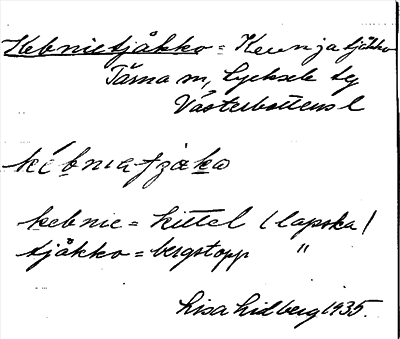 Kebnietjåkko = Keunjatjåkko
Tärna sn, Lycksele tg
Västerbottens l
kebnie = kittel (lapska)
tjåkko = bergstopp "
Lisa Lidberg 1935.